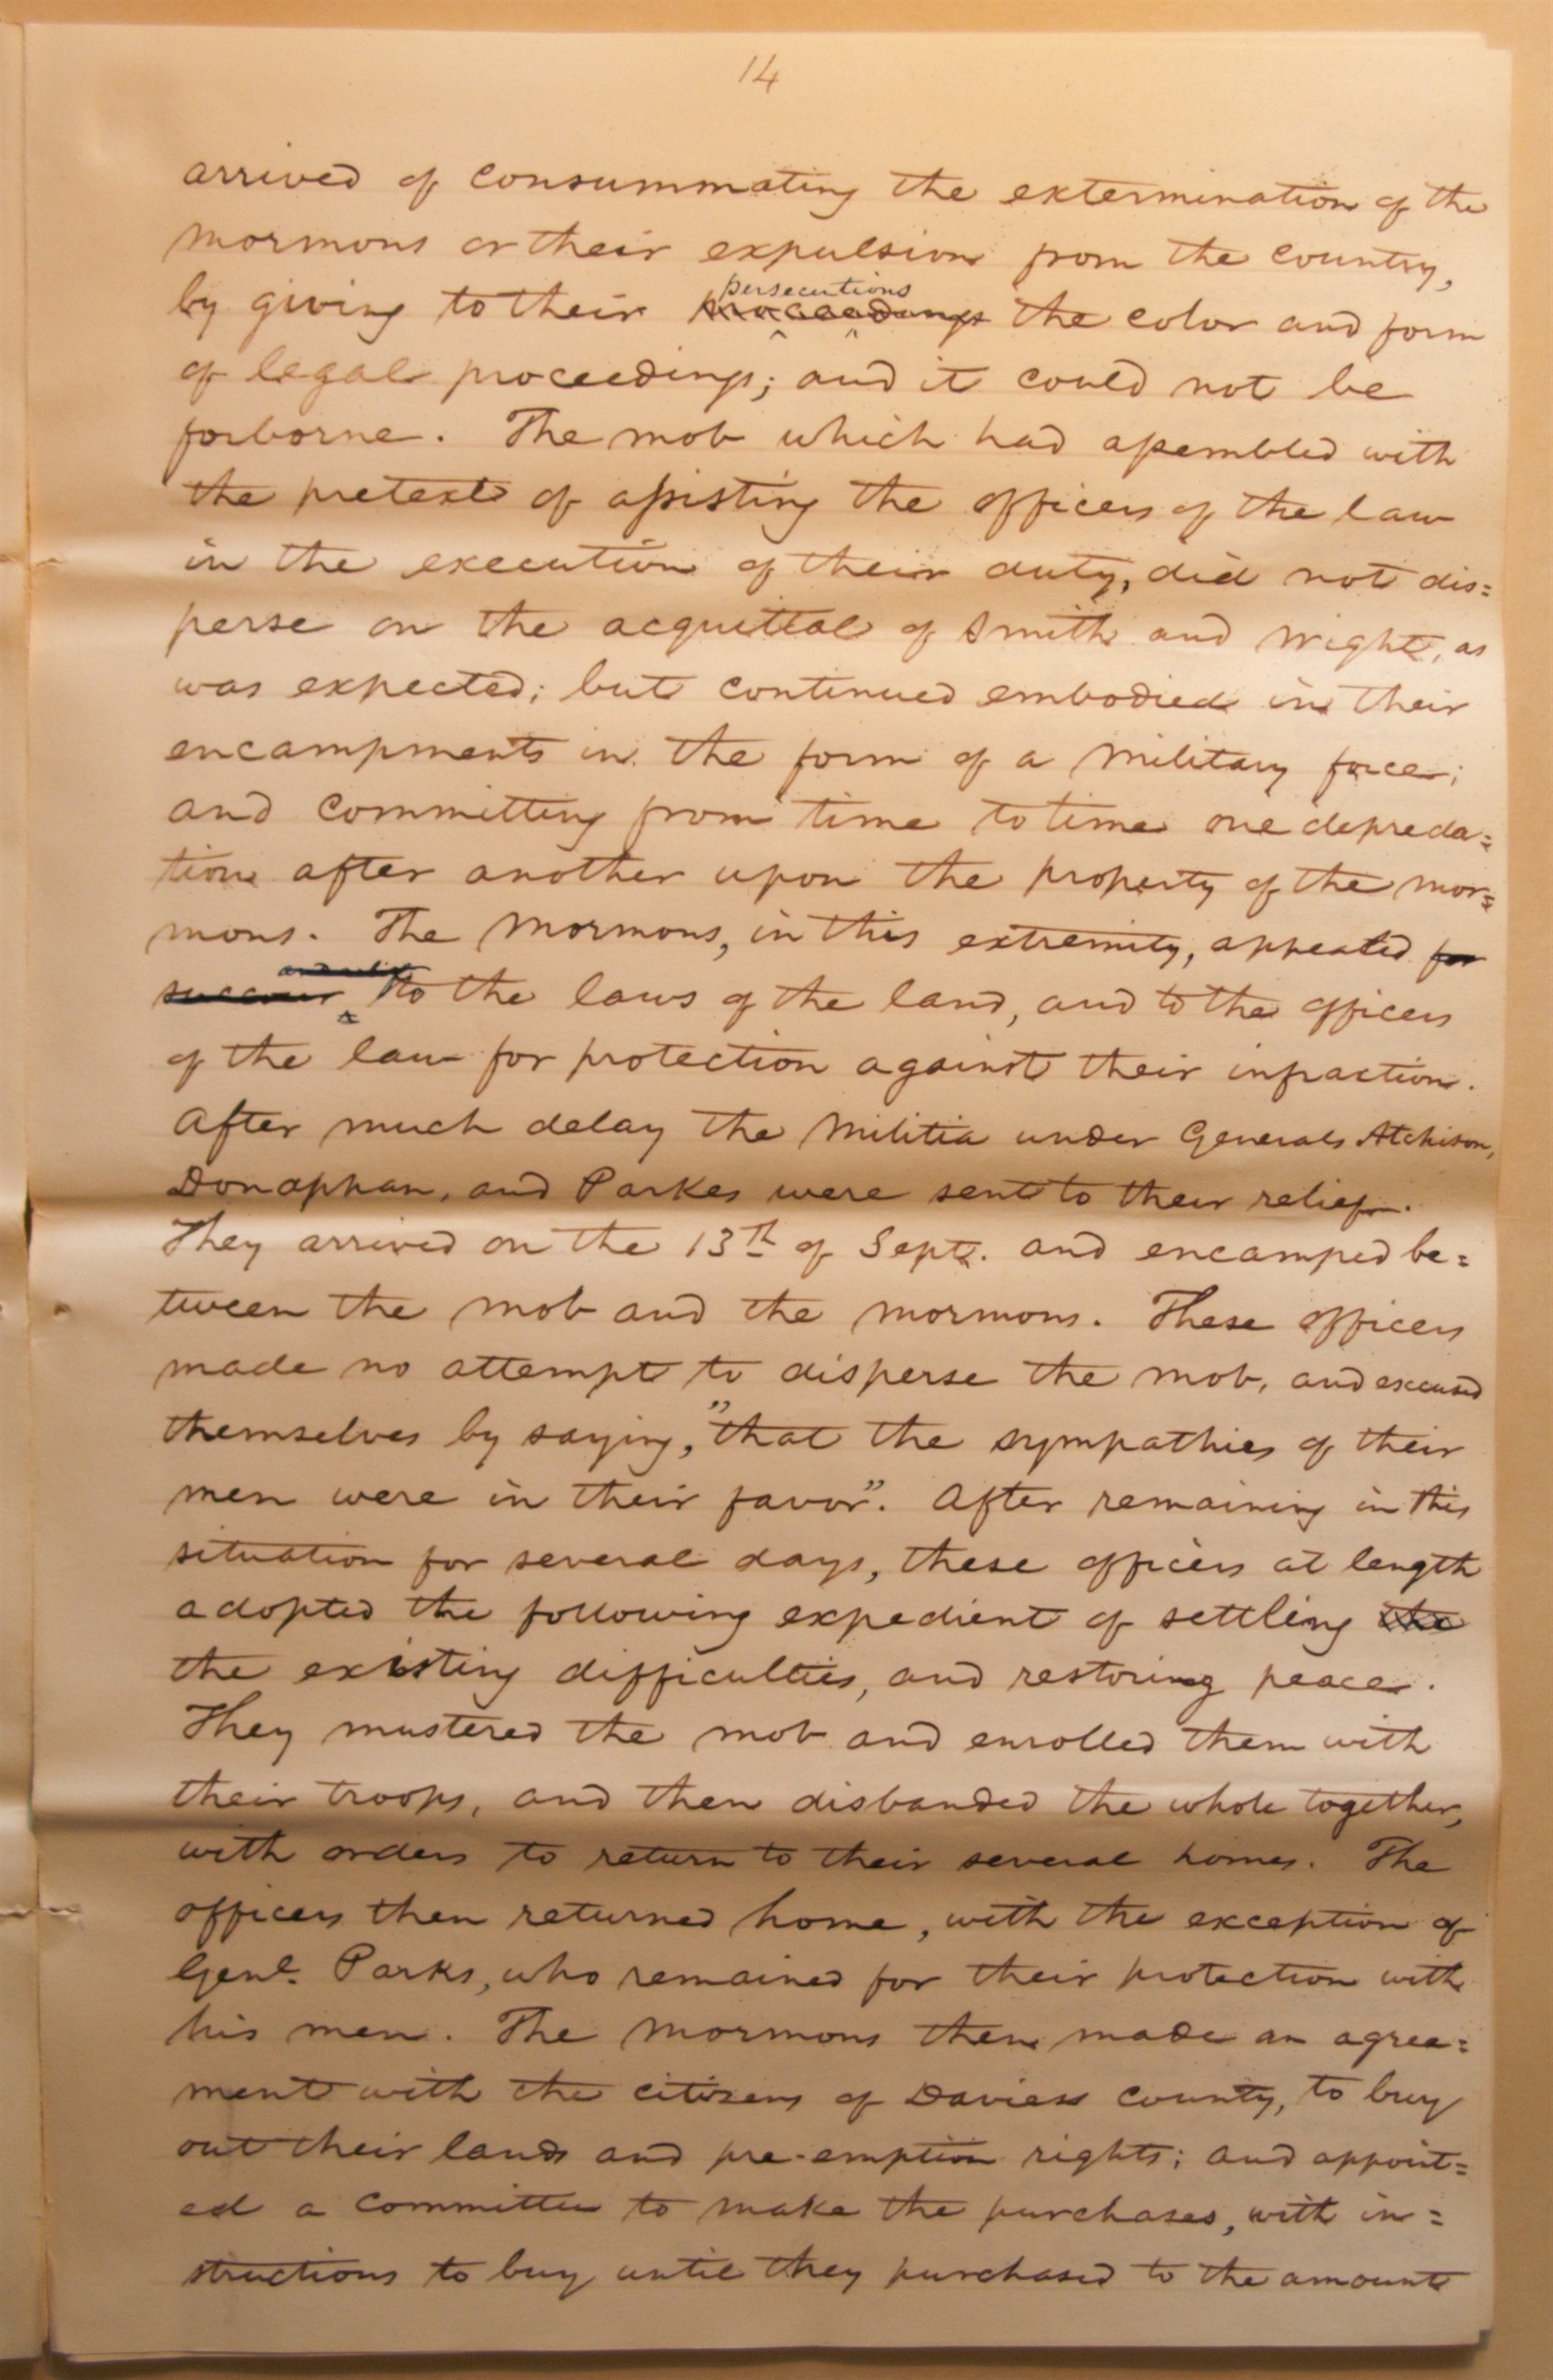 14
arrived of consummating the extermination of the
Mormons or their expulsion from the country,
persecutions
by giving to their proceedings the color and form
of legal proceedings; and it could not be
forborne. The mob which had assembled with
the pretext of assisting the officers of the law
in the execution of their duty, did not dis=
perse on the acquittal of Smith and Wright, as
was expected; but continued embodied in their
encampments in the form of a military force;
and committing from time to time one depreda=
tion after another upon the property of the Mor=
mons. The Mormons, in this extremity, appealed for
succour to the laws of the land, and to the officers
of the law for protection against their infraction.
After much delay the Militia under Generals Atchison,
Donaphan, and Parkes were sent to their relief.
They arrived on the 13th of Sept. and encamped be=
tween the mob and the mormons. These officers
made no attempt to disperse the mob, and excused
themselves by saying, "that the sympathies of their
men were in their favor". After remaining in this
situation for several days, these officers at length
adopted the following expedient of settling the
the existing difficulties, and restoring peace.
They mustered the mob and enrolled them with
their troops, and then disbanded the whole together,
with orders to return to their several homes. The
officers then returned home, with the exception of
Genl. Parks, who remained for their protection with
his men. The Mormons then made an agree=
ment with the citizens of Daviess County, to buy
out their lands and pre-emption rights; and appoint=
ed a committee to make the purchases, with in=
structions to buy until they purchased to the amount